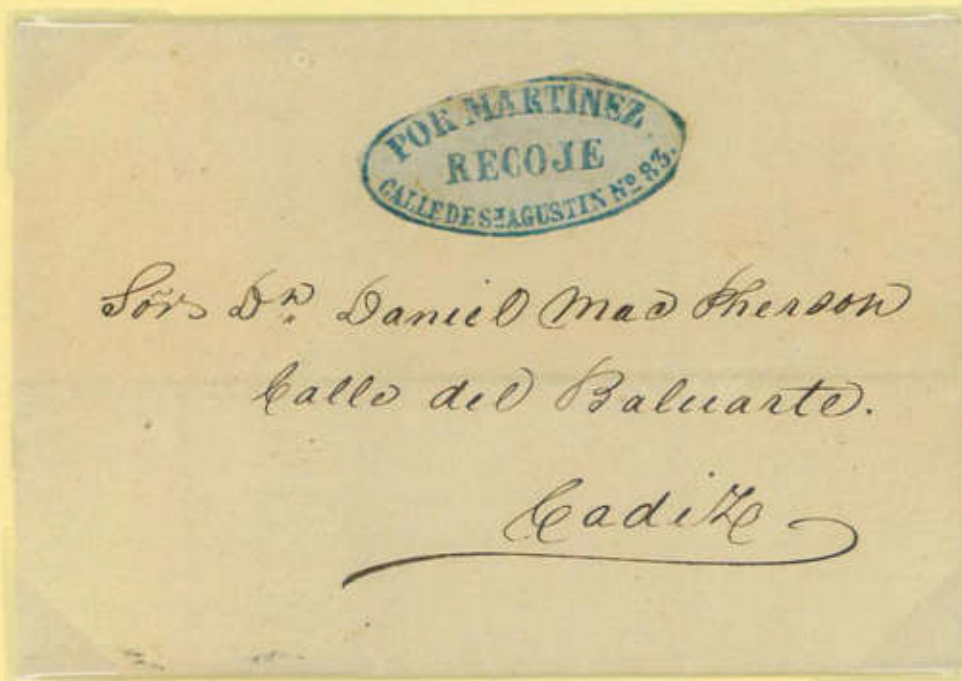 POR MARTINEZ.
RECOJE
CALLE DE Sⁿ AGUSTIN Nº 83.
Sōr Dⁿ Daniel Mac Pherson
Calle del Baluarte.
Cadiz